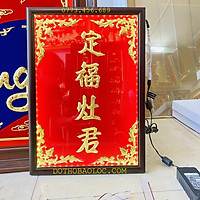 0773.436.689
定福灶君
DOTHOBAOLOC.COM